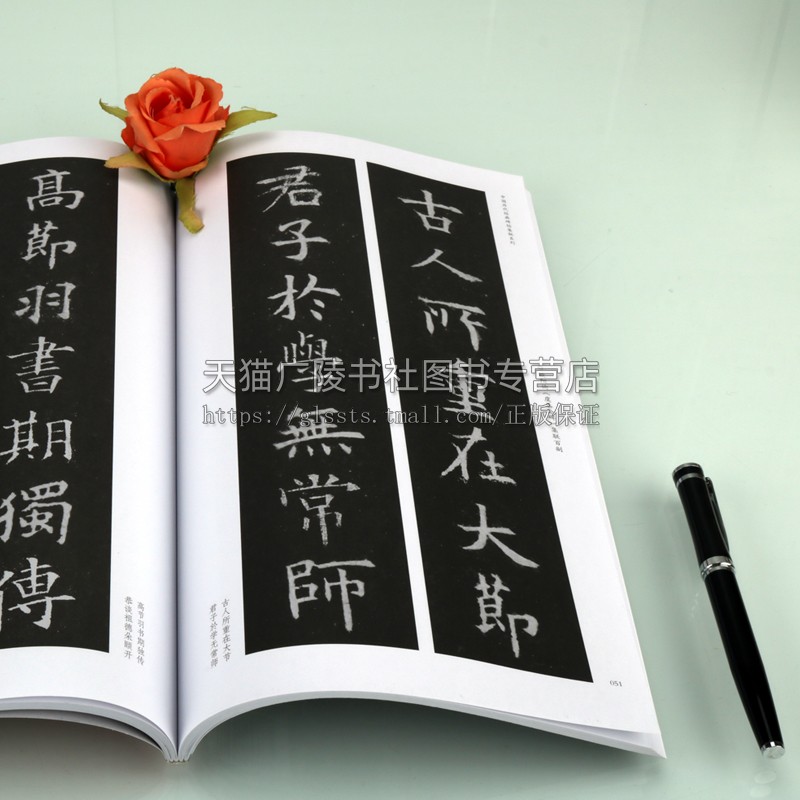 古人所重在大節
君子於學無常師
古人所重在大节
君子於学无常师
051
高節羽書期獨傳
高节羽书期独传
天猫广陵书社图书专营店
https://glssts.tmall.com/正版保证